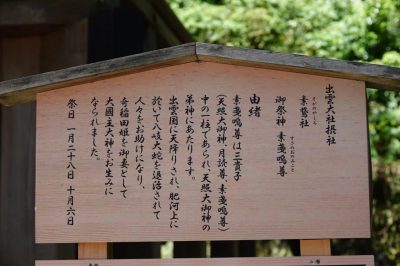 出雲大社摂社
素鵞社
そがのやしろ
御祭神 素戔嗚尊
すさのおのみこと
由緒
素戔嗚尊は三貴子
(天照大御神・月読尊・素戔嗚尊)
中の一柱であられ、天照大御神の
弟神にあたります。
出雲国に天降りされ、肥河上に
於いて八岐大蛇を退治されて
人々をお助けになり、
奇稲田姫を御妻として
大國主大神をお生みに
なられました。
祭日 一月二十八日 十月六日